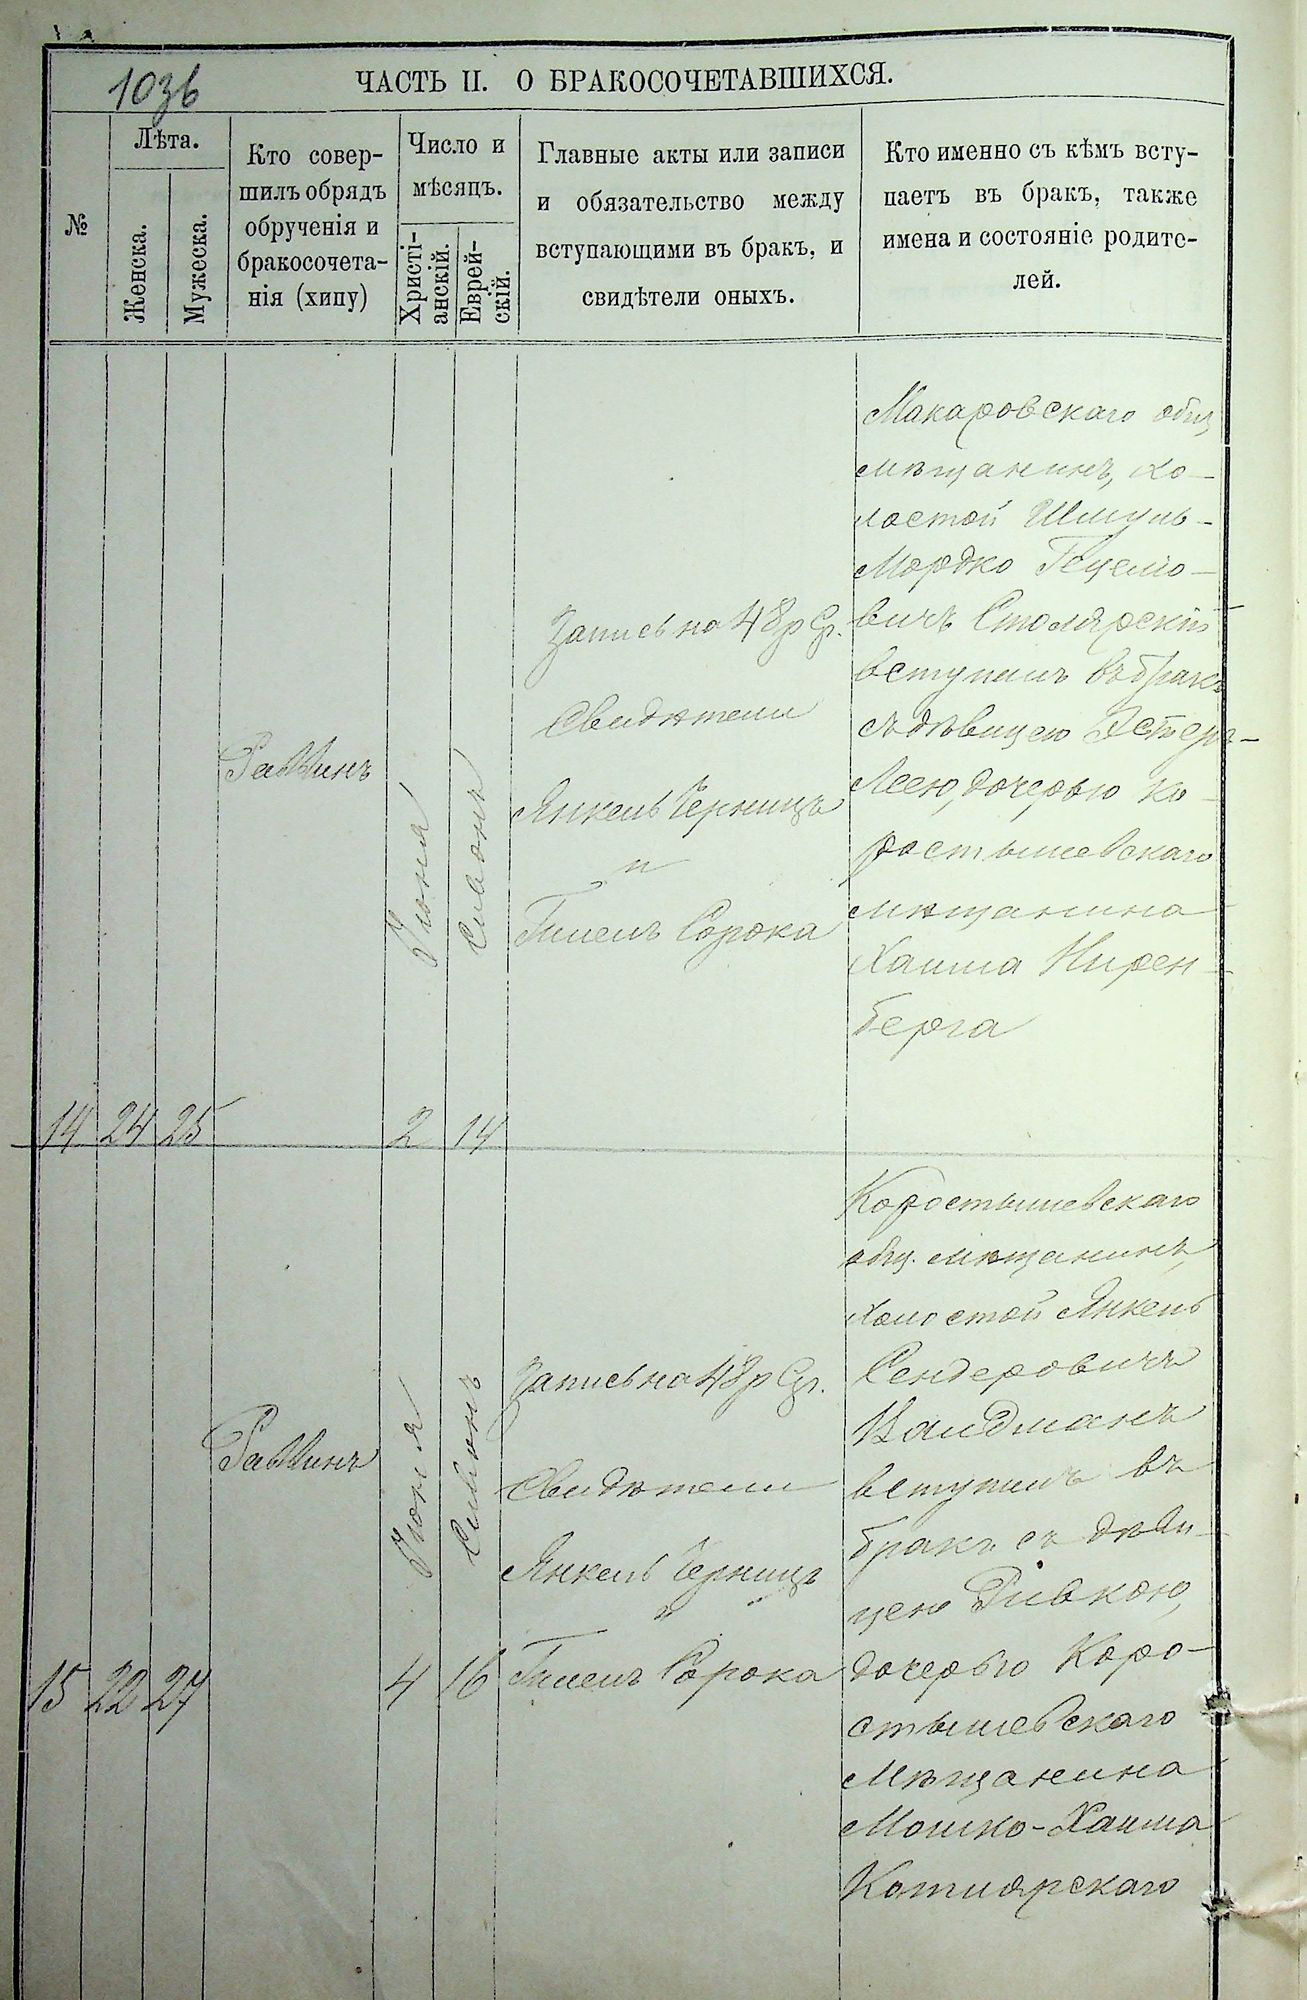 103 б
ЧАСТЬ II. О БРАКОСОЧЕТАВШИХСЯ.
№
Лѣта.
Женска.
Мужеска.
Кто совер-
шилъ обрядъ
обрученія и
бракосочета-
нія (хипу)
Число и
мѣсяцъ.
Христі-
анскій.
Еврей-
скій.
Главные акты или записи
и обязательство между
вступающими въ бракъ, и
свидѣтели оныхъ.
Кто именно съ кѣмъ всту-
паетъ въ бракъ, также
имена и состояніе родите-
лей.
14
24
25
Раввинъ
Июня
2
Сивонъ
14
Запись на 48 р Ср.
Свидѣтели
Янкель Черницъ
и
Гилель Сорока
Макаровскаго общ
мѣщанинъ, хо-
лостой Шмуль-
Мордко Гецело-
вичъ Столярскій
вступилъ въ бракъ
съ дѣвицею Эстеръ-
Леею, дочерью ко-
ростышевскаго
мѣщанина
Хаима Нирен-
берга
15
22
27
Раввинъ
Июня
4
Сивонъ
16
Запись на 48 р Ср.
Свидѣтели
Янкель Черницъ
и
Гилель Сорока
Коростышевскаго
общ. мѣщанинъ,
холостой Янкель
Сендеровичъ
Валдманъ
вступилъ въ
бракъ съ дѣви-
цею Ривкою,
дочерью Коро-
стышевскаго
Мѣщанина
Мошко-Хаима
Котлярскаго